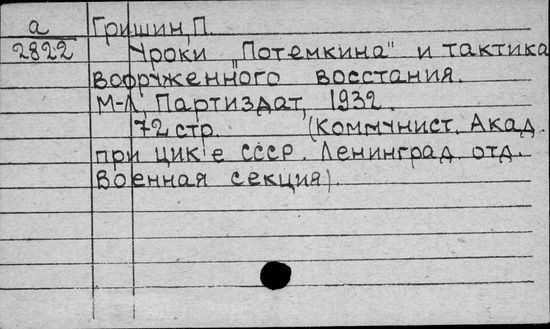 а Гришин, П.
2822 Уроки "Потемкина" и тактика
вооруженного восстания.
М-Л, Партиздат, 1932.
72 стр. (Коммунист. Акад.
при ЦИК'е СССР. Ленинград. отд.
Военная секция).